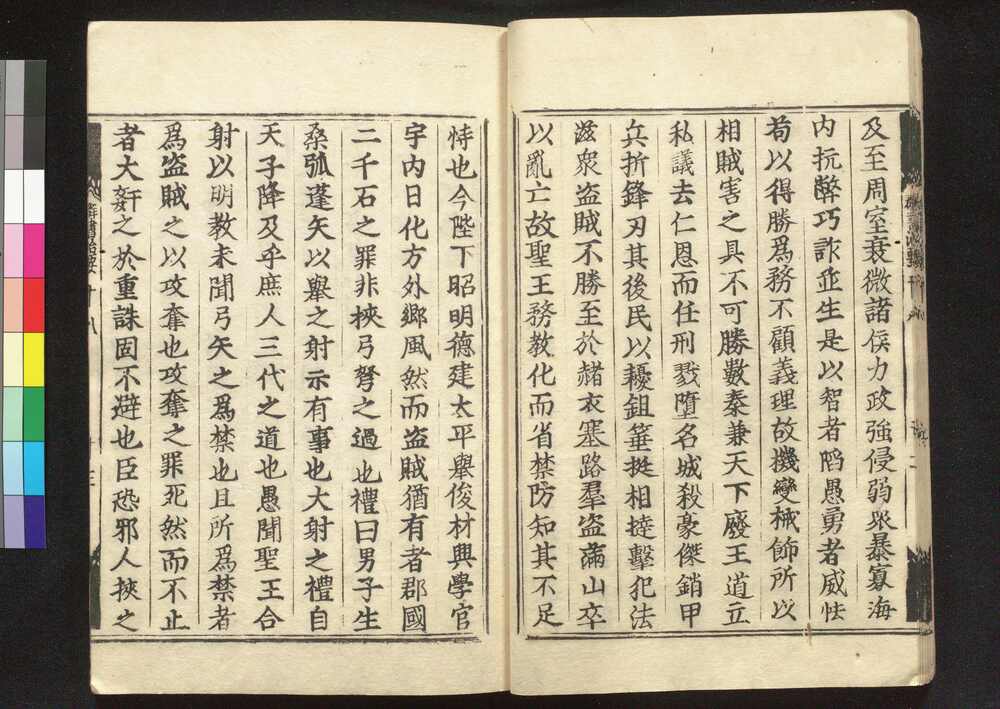 及至周室衰微諸侯力政強侵弱衆暴寡海
内抗弊巧詐並生是以智者陷愚勇者威怯
苟以得勝爲務不顧義理故機變械飾所以
相賊害之具不可勝數秦兼天下廢王道立
私議去仁恩而任刑戮墮名城殺豪傑銷甲
兵折鋒刃其後民以耰鉏箠挺相撻擊犯法
滋衆盗賊不勝至於赭衣塞路羣盗滿山卒
以亂亡故聖王務教化而省禁防知其不足
恃也今陛下昭明德建太平舉俊材興學官
宇内日化方外郷風然而盗賊猶有者郡國
二千石之罪非挾弓弩之過也禮曰男子生
桑弧蓬矢以舉之射示有事也大射之禮自
天子降及乎庶人三代之道也愚聞聖王合
射以明教未聞弓矢之爲禁也且所爲禁者
爲盗賊之以攻奪也攻奪之罪死然而不止
者大姧之於重誅固不避也臣恐邪人挾之